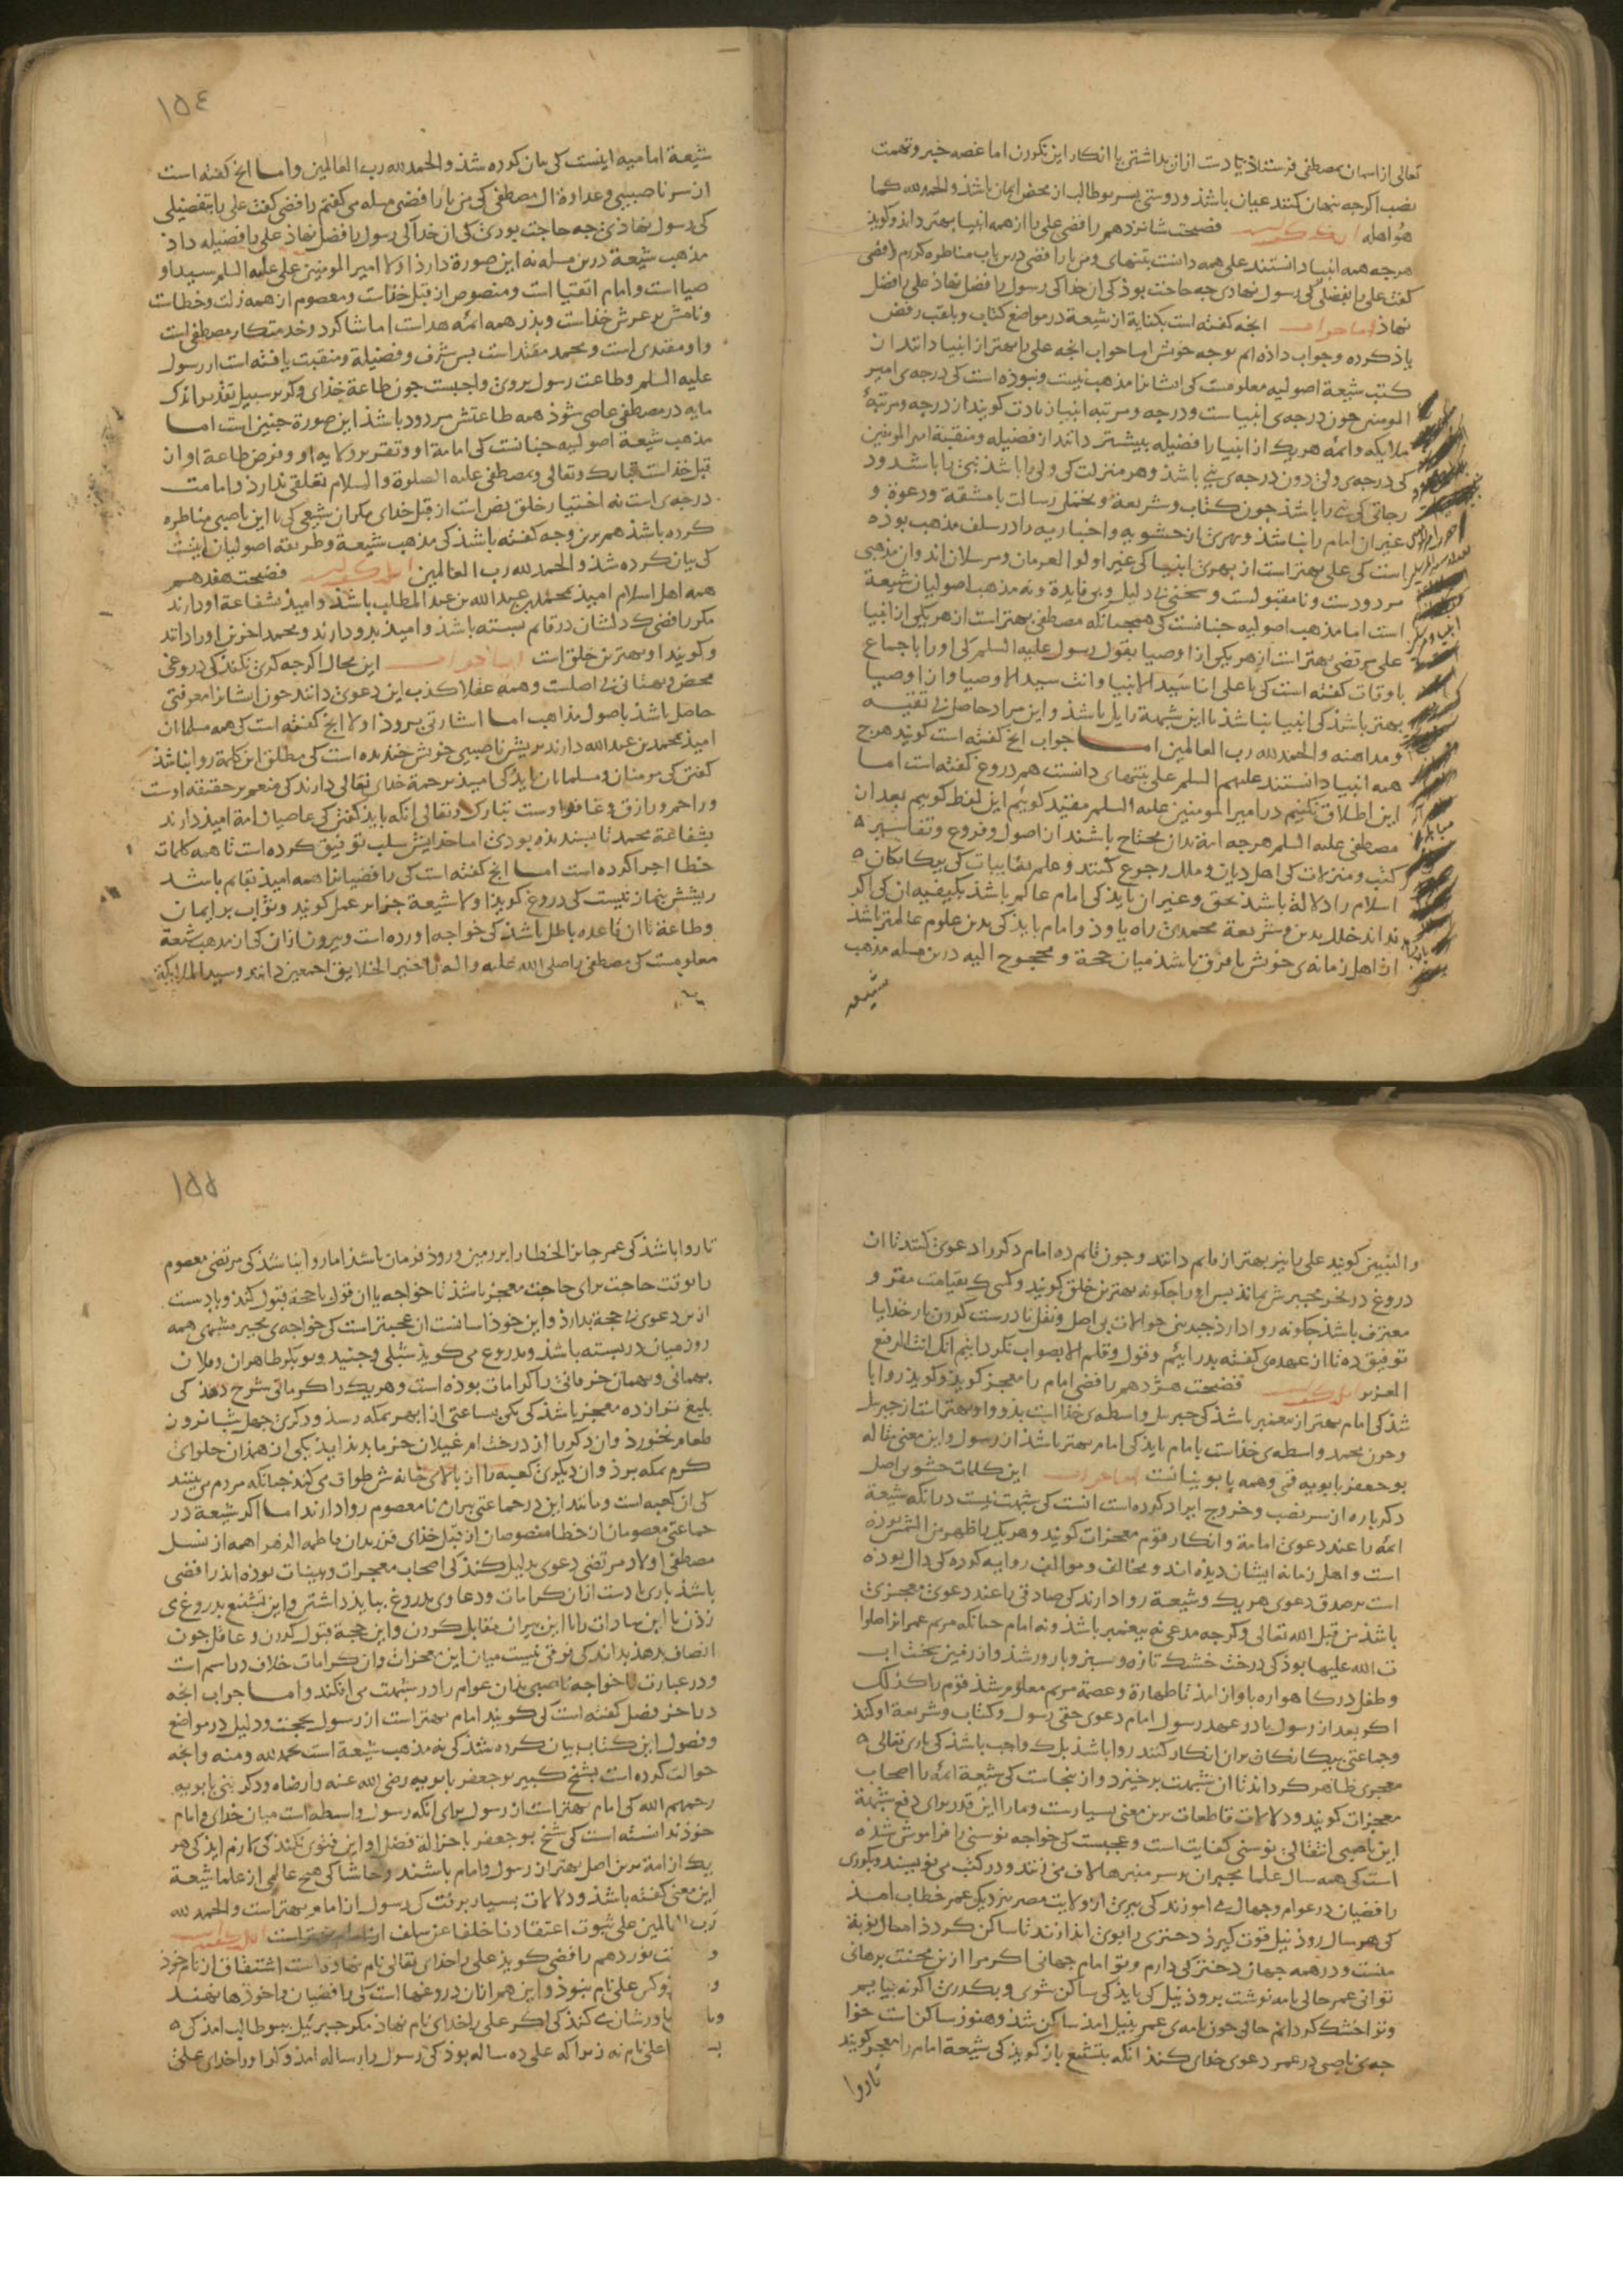 تعالی از اسمان بمصطفی فرستاذ یا دست ازان بداشتن یا انکار این نکردن اما غصه خبر وتهمت
نصب اکرجه پنهان کنند عیان باشذ ودوستی پسر بوطالب از محض ایمان باشذ والحمدلله کما
هو اهله فضیحت شانزدهم رافضی علی را از همه انبیا بهتر داند وکویذ
هرجه همه انبیا دانستند علی همه دانست بتنهای ومن با رافضی درین باب مناظره کردم رافضی
کفت علی را تفضلی کی رسول نهادی جه حاجت بوذ کی ان خذا کی رسول را فضل نهاذ علی را فضل
نهاذ اما جواب انجه کفته است بکنایة از شیعة در مواضع کتاب وبلقب رفض
یاذ کرده وجواب داده ام بوجه خوش اما جواب انجه علی را بهتر از انبیا دانند ان
کتب شیعة اصولیه معلومست کی ایشانرا مذهب نیست ونبوذه است کی درجه ی امیر
المومنین جون درجه ی انبیاست ودرجه ومرتبه انبیا زیادت کویند از درجه ومرتبهٔ
ملایکه وائمه هریک از انبیا را فضیله بیشتر دانند از فضیله ومنقبة امیر المومنین
کی درجه ی ولی دون درجه ی نبی باشذ وهر منزلت کی ولی را باشذ نبی را باشد ودر
رجاتی کی نبی را باشذ جون کتاب وشریعة وتحمل رسالت با مشقة ودعوة و
غیر ان امام را نباشذ وبهری از حشویه واخباریه را در سلف مذهب بوده
است کی علی بهتر است از بهری انبیا کی غیر اولوا العزم ان ومرسلان اند وان مذهبی
مردودست ونامقبولست وسخنی بی دلیل وبی فایدة ونه مذهب اصولیان شیعة
است اما مذهب اصولیه جنانست کی همجنانکه مصطفی بهتر است از هر یکی از انبیا
علی مرتضی بهتر است از هر یکی از اوصیا بقول رسول علیه السلم کی او را باجماع
باوقات کفته است کی یا علی انا سید الانبیا وانت سید الاوصیا وان اوصیا
بهتر باشذ کی انبیا نباشذ تا این شبهة زایل باشذ واین مراد حاصل بی تقیه
ومداهنه والحمدلله رب العالمین اما جواب انج کفته است کویند هرج
همه انبیا دانستند علیهم السلم علی بتنهای دانست هم دروغ کفته است اما
این اطلاق نکنیم در امیر المومنین علیه السلم مقید کوییم این لفظ کوییم بعد از
مصطفی علیه السلم هرجه امة بدان محتاج باشند از اصول وفروع وتفاسیر
کتب ومنزلات کی اهل دیان وملل رجوع کنند وعلم بغایبات کی بیکانکان
اسلام را دلالة باشذ بحق وغیر ان بایذ کی امام عالم باشذ بکیفیه ان کی اکر
نداند خلل بدین وشریعة محمدی راه یاوذ وامام بایذ کی بدین علوم عالمتر باشذ
از اهل زمانه ی خویش تا فرق باشذ میان حجة ومحجوج الیه درین مسله مذهب
شیعه
۱۵٤
شیعة امامیه اینست کی بیان کرده شذ والحمدلله رب العالمین واما انج کفته است
از سر ناصبیی وعداوة ال مصطفی کی من با رافضی مسله می کفتم رافضی کفت علی را تفضیلی
کی رسول نهاذی جه حاجت بودی کی ان خدا کی رسول را فضل نهاذ علی را فضیله داذ
مذهب شیعة درین مسله نه این صورة دارذ اولا امیر المومنین علی علیه السلم سید او
صیا است وامام اتقیا است ومنصوص از قبل خذاست ومعصوم از همه زلت وخطاست
ونامش بر عرش خذاست وپذر همه ائمه هداست اما شاکرد وخدمتکار مصطفی است
واو مقتدی است ومحمد مقتدا است پس شرف وفضیلة ومنقبت یافته است از رسول
علیه السلم وطاعت رسول بروی واجبست جون طاعة خذای وکر بر سبیل تقدیر اندک
مایه در مصطفی عاصی شوذ همه طاعتش مردود باشذ این صورة جنین است اما
مذهب شیعة اصولیه جنانست کی امامة او وتقریر ولایه او وفرض طاعة او از
قبل خذاست تبارک وتعالی وبمصطفی علیه الصلوة والسلام تعلقی ندارذ وامامت
درجه ی است نه اختیار خلق نص است از قبل خذای مکر ان شیعی کی با این ناصبی مناظره
کرده باشذ هم برین وجه کفته باشذ کی مذهب شیعة وطریقه اصولیان اینست
کی بیان کرده شذ والحمدلله رب العالمین فضیحت هفدهم
همه اهل اسلام امیذ بمحمد بن عبدالله بن عبدالمطلب باشذ وامیذ بشفاعة او دارند
مکر رافضی کی دلشان در قایم بسته باشذ وامیذ بدو دارند ومحمد اخرین او را دانند
وکویند او بهترین خلق است اما جواب این محال اکرجه کری نکند کی دروغی
محض وبهتانی بی اصلست وهمه عقلا کذب این دعوی دانند جون ایشانرا معرفتی
حاصل باشذ باصول مذاهب اما اشارتی بروذ اولا انج کفته است کی همه مسلمانان
امیذ بمحمد بن عبدالله دارند بریش ناصبیی خویش خندیده است کی مطلق این کلمة روا نباشذ
کفتن کی مومنان ومسلمانان بایذ کی امیذ برحمة خذای تعالی دارند کی منعم بر حقیقه اوست
وراحم ورازق وغافر اوست تبارک وتعالی انکه بایذ کفتن کی عاصیان امة امیذ دارند
بشفاعة محمد تا پسندیده بودی اما خذایش سلب توفیق کرده است تا همه کلمات
خطا اجرا کرده است اما انج کفته است کی رافضیانرا همه امیذ بقایم باشد
ریشش بنماز نیست کی دروغ کویذ اولا شیعة جزا بر عمل کویند وثواب بر ایمان
وطاعة تا ان قاعده باطل باشذ کی خواجه اورده است وبیرون ازان کی از مذهب شیعة
معلومست کی مصطفی را صلی الله علیه واله خیر الخلایق اجمعین دانند وسید الملایکة
والنبیین کویند علی را نیز بهتر از قایم دانند وجون قایم ده امام دکر را دعوی کنند تا ان
دروغ در نحر مجبرش بماند پس او را جکونه بهترین خلق کویند وکسی کی بقیامت مقر و
معترف باشذ جکونه روا دارذ جندینی حوالات بی اصل ونقل نادرست کردن بار خذایا
توفیق ده تا از عهده ی کفته بدر اییم وقول وقلم الا بصواب نکردانیم انک انت الرفیع
العزیز فضیحت هژدهم رافضی امام را معجز کویذ وکویذ روا با
شذ کی امام بهتر از پیغمبر باشذ کی جبریل واسطه ی خذا است بذو واو بهتر است از جبریل
وجون محمد واسطه ی خذاست با امام بایذ کی امام بهتر باشذ از رسول واین معنی مقاله
بوجعفر بابویه قمی وهمه بابویان است اما جواب این کلمات حشو بی اصل
دکرباره از سر نصب وخروج ایراد کرده است انست کی شبهت نیست درانکه شیعة
ائمه را عند دعوی امامة وانکار قوم معجزات کویند وهر یک را ظهر من الشمس بوده
است واهل زمانه ایشان دیذه اند ومخالف وموالف روایه کرده کی دال بوذه
است بر صدق دعوی هریک وشیعة روا دارند کی صادقی را عند دعوی معجزی
باشذ من قبل الله تعالی وکرجه مدعی نه پیغمبر باشذ ونه امام جنانکه مریم عمران را صلوا
ت الله علیها بوذ کی درخت خشک تازه وسبز وبارور شذ واز زمین بخت اب
وطفل درکاهواره باواز امذ تا طهارة وعصمة مریم معلوم شذ قوم را کذلک
اکر بعد از رسول یا در عهد رسول امام دعوی حقی رسول وکتاب وشریعة او کند
وجماعتی بیکانکان بران انکار کنند روا باشذ بلک واجب باشذ کی باری تعالی
معجزی ظاهر کرداند تا ان شبهت برخیزد وازینجاست کی شیعة ائمه را اصحاب
معجزات کویند ودلالات قاطعات برین معنی بسیارست وما را این قدر برای دفع شبهة
این ناصبی انتقالی نوسنی کفایت است وعجبست کی خواجه نوسنی را فراموش شذه
است کی همه سال علما مجبران بر سر منبرها لاف می زنند ودر کتب می نویسند وبکوری
رافضیان در عوام وجهال می اموزند کی پیری از ولایت مصر بنزدیک عمر خطاب امذ
کی هر سال روذ نیل قوت کیرذ دختری را بوی اندازند تا ساکن کردذ امسال نوبة
منست ودر همه جهان دختری کی دارم وتو امام جهانی اکر مرا ازین محنت برهانی
توانی عمر حالی نامه نوشت بروذ نیل کی بایذ کی ساکن شوی وبکدری اکر نه بیایم
وترا خشک کردانم حالی جون نامه ی عمر بنیل امذ ساکن شذ وهنوز ساکن است خوا
جه ی ناصبی در عمر دعوی خذای کند انکه بتشنیع باز کویذ کی شیعة امام را معجز کویند
تا روا
۱۵۵
تا روا باشذ کی عمر جایز الخطا را بر زمین وروذ فرمان باشذ اما روا نباشذ کی مرتضی معصوم
را بوقت حاجت برای حاجت معجز باشذ تا خواجه یا ان قول با حجة قبول کند ویا دست
ازین دعوی بی حجة بدارذ واین خوذ اسانست ان عجبتر است کی خواجه ی مجبر مشبهی همه
روز میان در بسته باشذ وبدروغ می کویذ شبلی وجنید وبوبکر طاهران وفلان
بهمانی وبهمان خرقانی را کرامات بوده است وهریک را کراماتی شرح دهذ کی
بلیغ تر از ده معجز باشذ کی یکی بساعتی از ابهر بمکه رسذ ودکری جهل شبانروز
طعام نخورذ وان دکر را از درخت ام غیلان خرما بدید ایذ یکی از همذان حلوای
کرم بمکه برذ وان دیکری کعبه را از بالای خانه ش طواف می کند جنانکه مردم می بینند
کی ان کعبه است ومانند این در جماعتی پیران نا معصوم روا دارند اما اکر شیعة در
جماعتی معصومان از خطا منصوصان از قبل خذای فرزندان فاطمه الزهرا همه از نسل
مصطفی اولاد مرتضی دعوی بدلیل کنند کی اصحاب معجزات وبینات بوده اند رافضی
باشذ باری یا دست ازان کرامات ودعاوی بدروغ ببایذ داشتن واین تشنیع بدروغ ی
زدن یا این سادات را با این پیران مقابل کردن واین حجة قبول کردن وعاقل جون
انصاف بدهذ بداند کی فرقی نیست میان این معجزات وان کرامات خلاف در اسم است
ودر عبارت تا خواجه ناصبی بذان عوام را در شبهت می افکند واما جواب انجه
در اخر فصل کفته است کی کویند امام بهتر است از رسول بحجت ودلیل در مواضع
وفصول این کتاب بیان کرده شذ کی نه مذهب شیعة است بحمدلله ومنه وانجه
حوالت کرده است بشیخ کبیر بوجعفر بابویه رضی الله عنه وارضاه ودکر بنی بابویه
رحمهم الله کی امام بهتر است از رسول برای انکه رسول واسطه است میان خذای وامام
خوذ ندانسته است کی شیخ بوجعفر با جزالة فضل او این فتوی نکند کی لازم ایذ کی هر
یک از امة برین اصل بهتر از رسول وامام باشند وحاشا کی هیچ عالمی از علما شیعة
این معنی کفته باشذ ودلالات بسیار برنت کی رسول از امام بهتر است والحمد لله
رب العالمین علی ثبوت اعتقادنا خلفا عن سلف
نوزدهم رافضی کویذ علی را خذای تعالی نام نهاذه است اشتقاق از نام خوذ
وکس علی نام نبوذ واین هم ازان دروغها است کی رافضیان را خوذ ها نهند
باورشان کند کی اکر علی را خذای نام نهاذ مکر جبرئیل ببوطالب امذ کی
علی نام نه زیرا که علی ده ساله بوذ کی رسول را رساله امذ وکرا ورا خذای علی